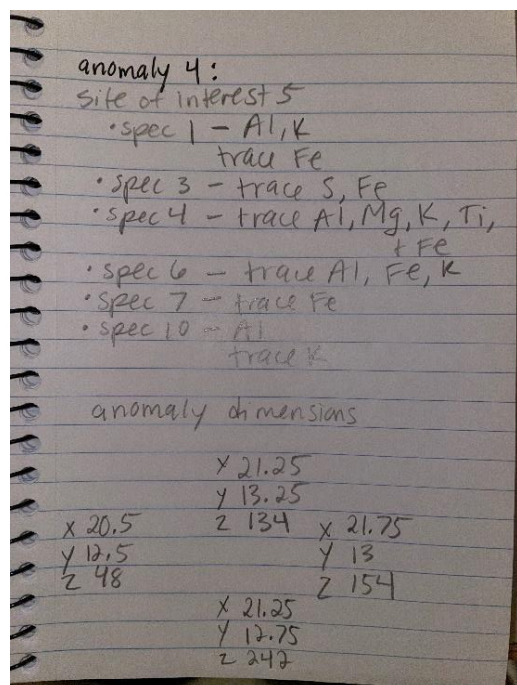 anomaly 4:
site of interest 5
• spec 1 – Al, K
trace Fe
• spec 3 – trace S, Fe
• spec 4 – trace Al, Mg, K, Ti,
+ Fe
• spec 6 – trace Al, Fe, K
• spec 7 – trace Fe
• spec 10 – Al
trace K
anomaly dimensions
X 21.25
Y 13.25
Z 134
X 20.5
Y 12.5
Z 48
X 21.75
Y 13
Z 154
X 21.25
Y 12.75
Z 242